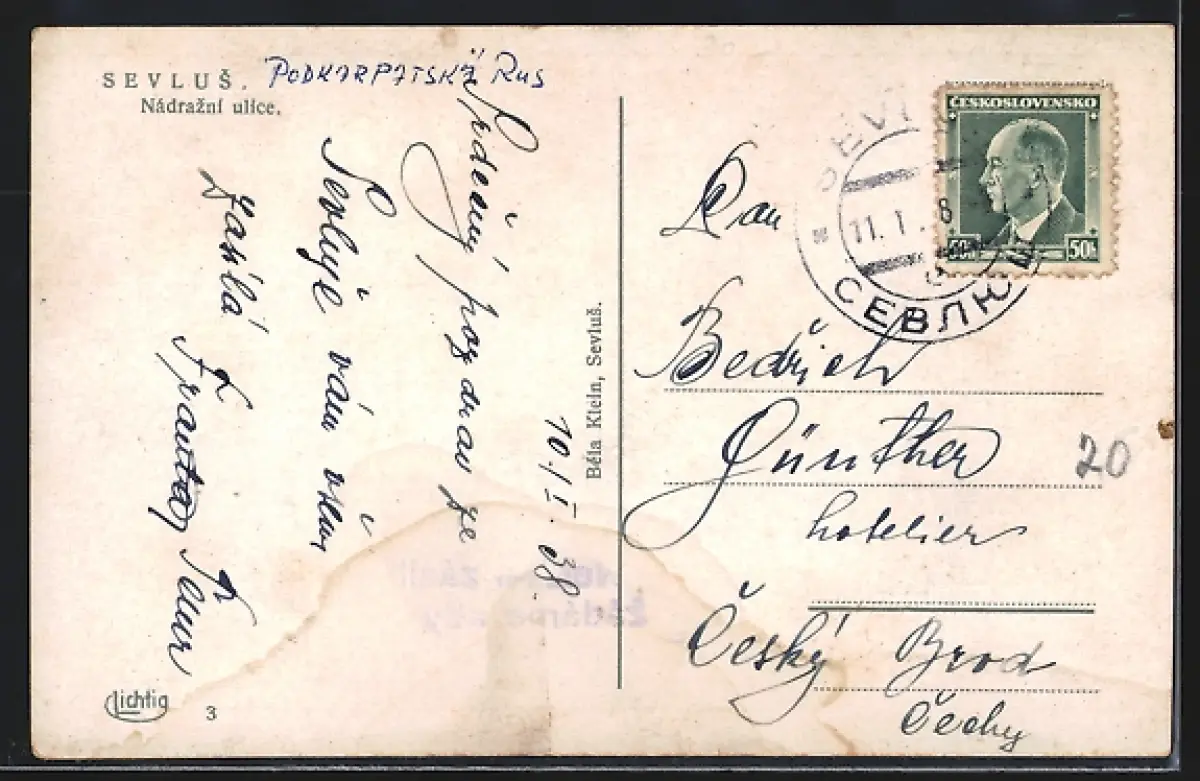 SEVLUŠ. PODKARPATSKÁ RUS
Nádražní ulice.
10./I. 38.
Srdečný pozdrav ze
Sevluše vám všem
zasílá
Béla Klein, Sevluš.
Lichtig
3
ČESKOSLOVENSKO
50h 50h
11.I. 8
СЕВЛЮ
Pan
Bedřich
Günther
hotelier
Český Brod
Čechy
20